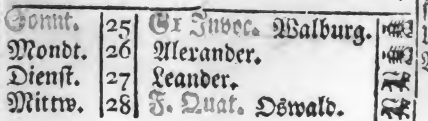 Sonnt. 25 Ex Invoc. Walburg.
Mondt. 26 Alexander.
Dienst. 27 Leander.
Mittw. 28 F. Quat. Oswald.